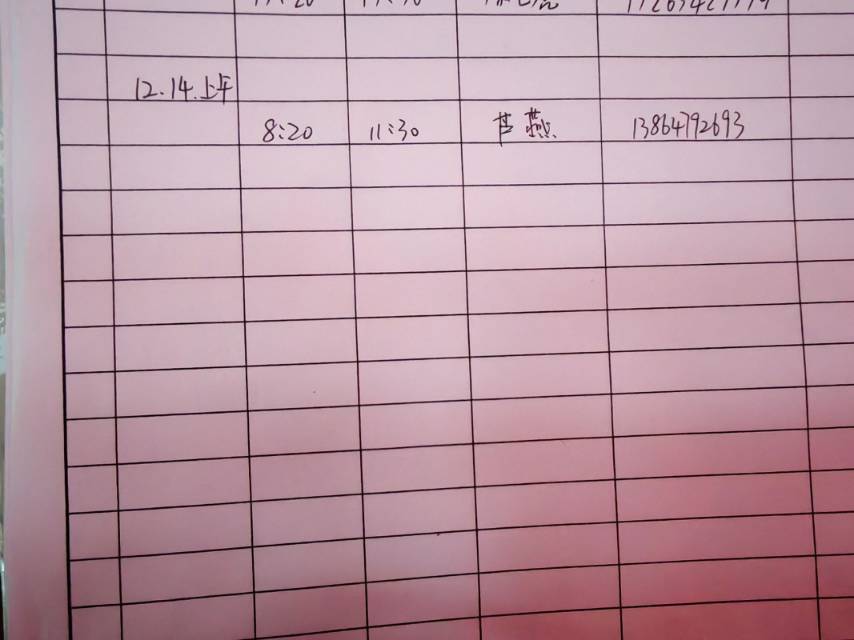 12.14.上午
8:20 11:30 芦燕 13864792693